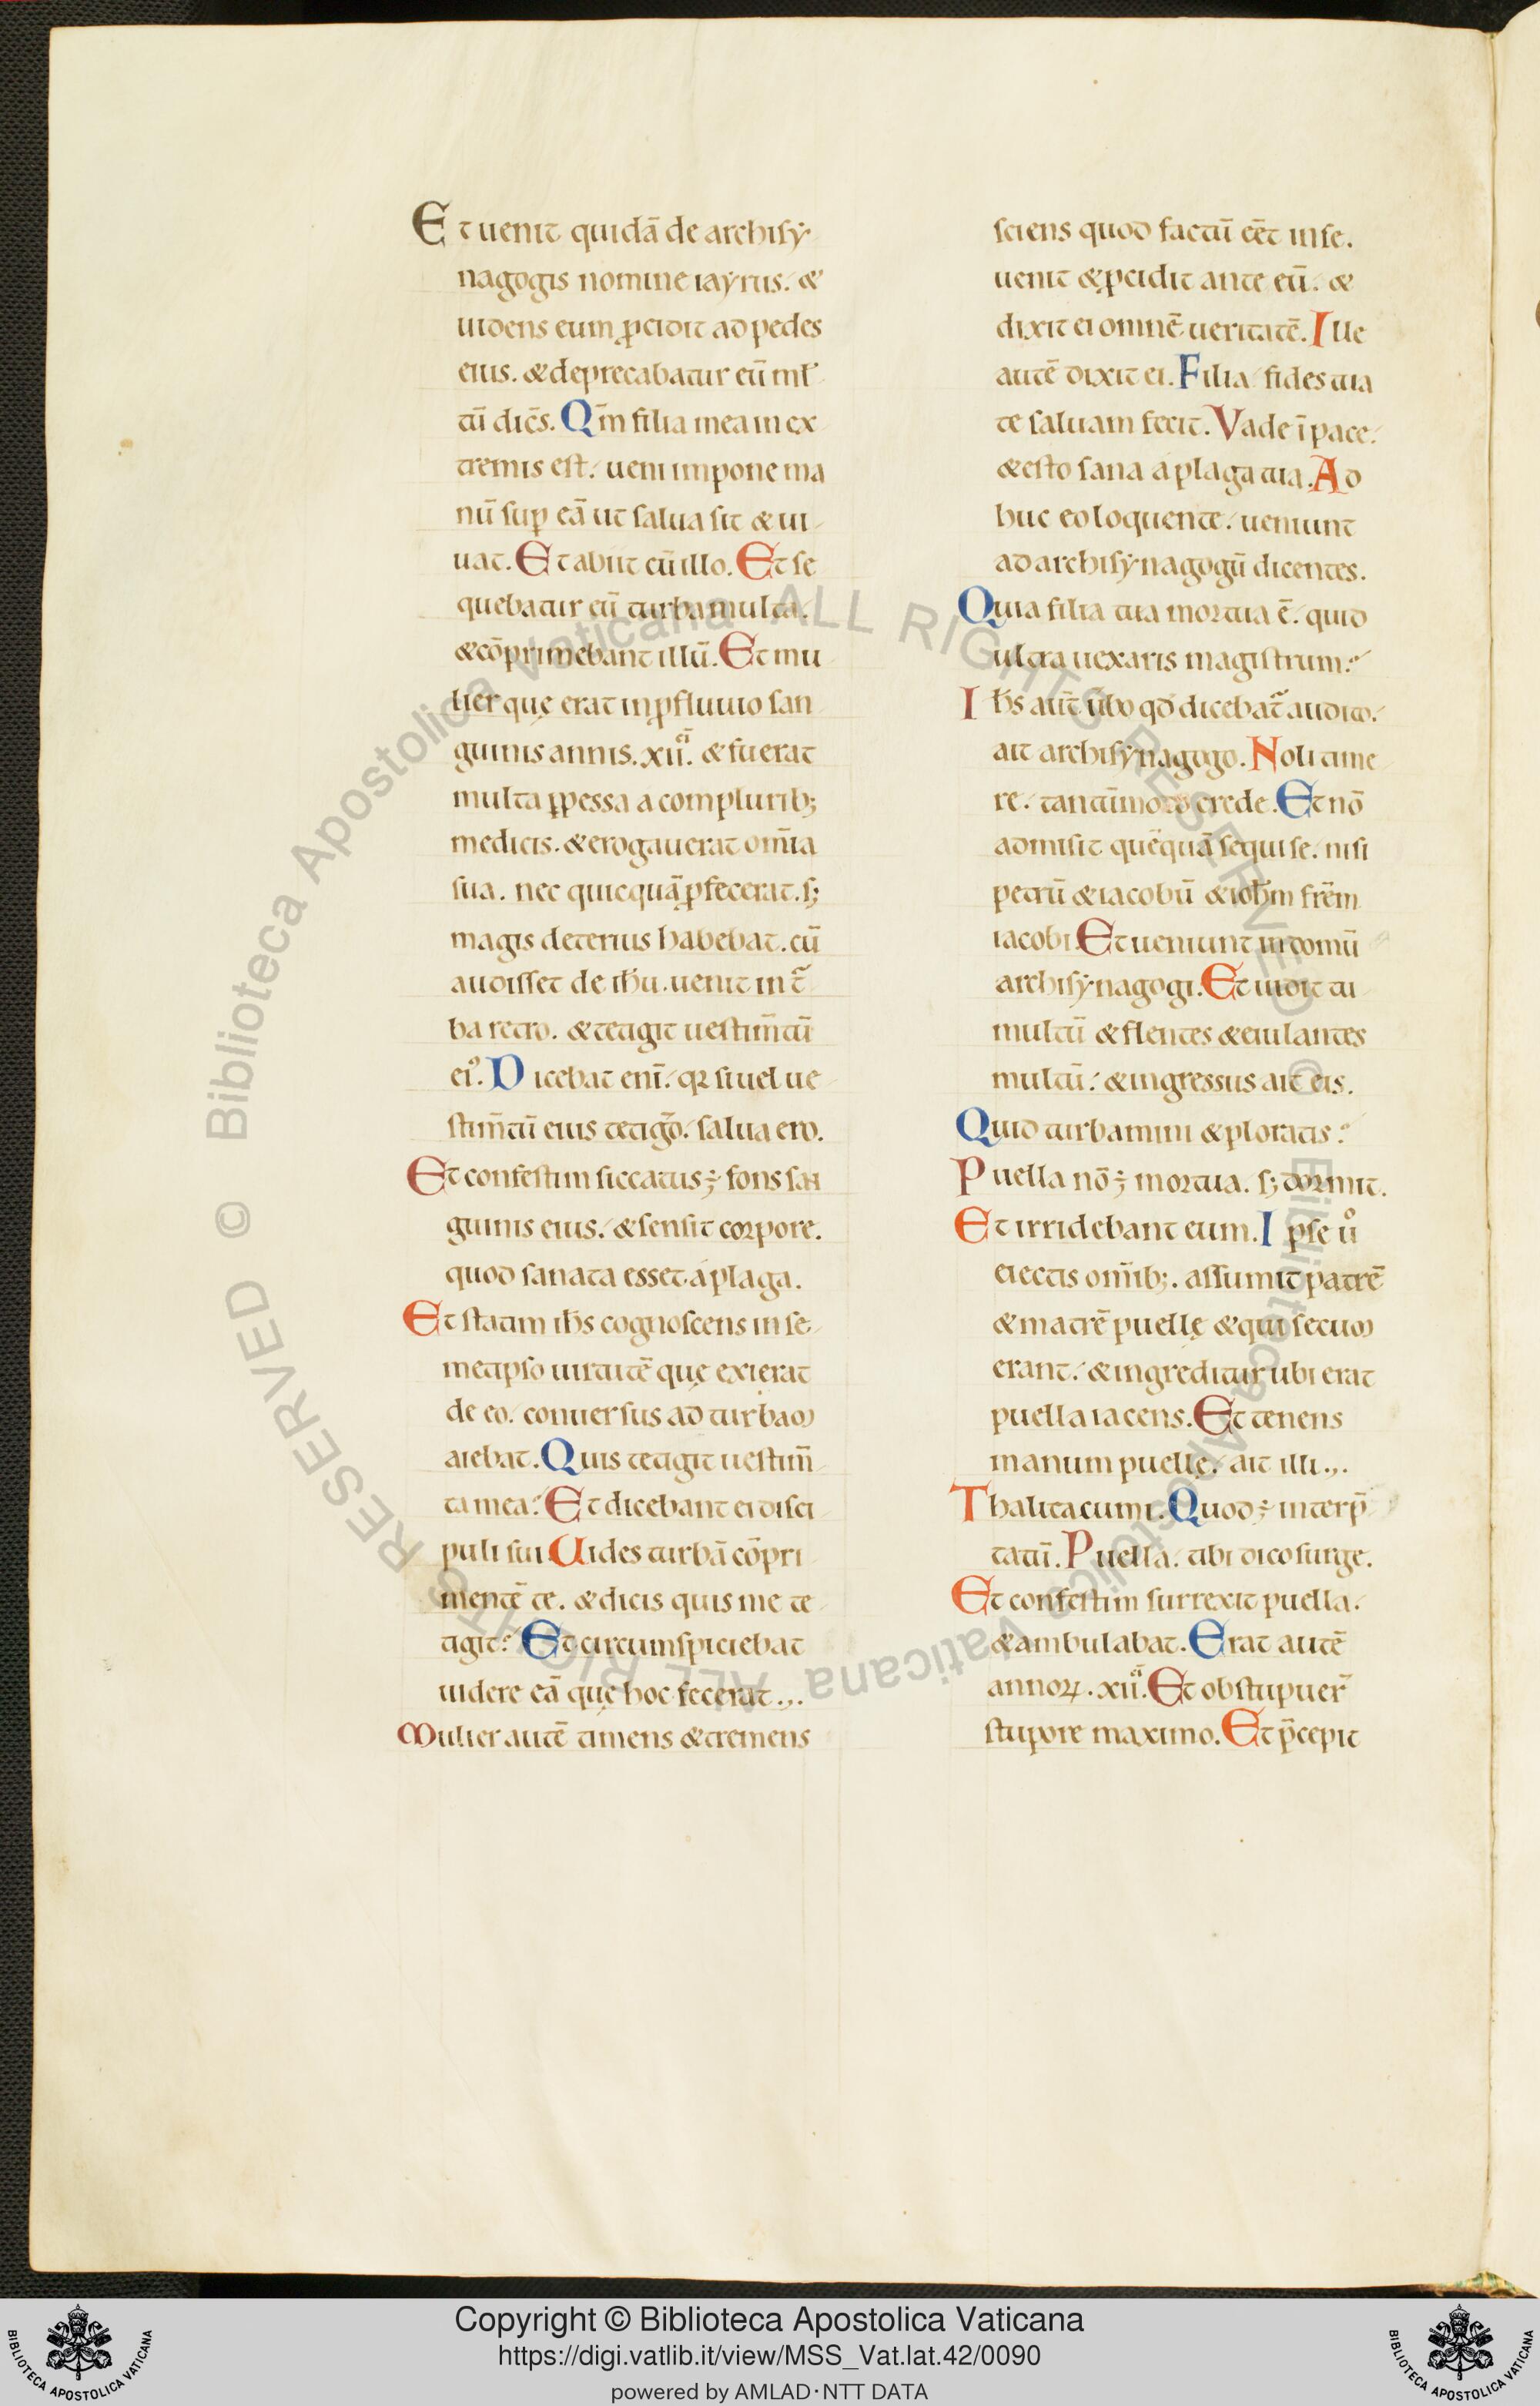 Et uenit quidā de archisy
nagogis nomine iayrus. &
uidens eum ꝓcidit ad pedes
eius. & deprecabatur eū ml̄
tū dic̄s. Qm̄ filia mea in ex
tremis est. ueni impone ma
nū sup̄ eā ut salua sit & ui
uat. Et abiit cū illo. Et se
quebatur eū turba multa.
& cōprimebant illū. Et mu
lier que erat in ꝓfluuio san
guinis annis. xii. & fuerat
multa ꝑpessa a complurib;
medicis. & erogauerat om̄ia
sua. nec quicquā ꝓfecerat. s;
magis deterius habebat. cū
audisset de ihū. uenit in t̄
ba retro. & tetigit uestim̄tū
ei⁹. Dicebat enī. qꝛ si uel ue
stim̄tū eius tetig̃o. salua ero.
Et confestim siccatus ÷ fons san
guinis eius. & sensit corpore.
quod sanata esset a plaga.
Et statim ih̄s cognoscens in se
metipso uirtutē que exierat
de eo. conuersus ad turbam
aiebat. Quis tetigit uestim̄
ta mea? Et dicebant ei disci
puli sui Uides turbā cōpri
mentē te. & dicis quis me te
tigit? Et circumspiciebat
uidere eā que hoc fecerat.,.
Mulier autē timens & tremens
sciens quod factū eēt in se.
uenit & ꝓcidit ante eū. &
dixit ei omnē ueritatē. Ille
autē dixit ei. Filia fides tua
te saluam fecit. Vade ī pace.
& esto sana a plaga tua. Ad
huc eo loquente. ueniunt
ad archisynagogū dicentes.
Quia filia tua mortua ē. quid
ultra uexaris magistrum?
Ih̄s aut̄ ūbo qd̄ dicebat̄ audito.
ait archisynagogo. Noli time
re. tantūmodo crede. Et nō
admisit quēquā sequi se. nisi
petrū & iacobū & ioh̄m fr̄em
iacobi. Et ueniunt in domū
archisynagogi. Et uidit tu
multū & flentes & eiulantes
multū. & ingressus ait eis.
Quid turbamini & ploratis?
Puella nō ÷ mortua. s; dormit.
Et irridebant eum. Ipse ů
eiectis om̄ib;. assumit patrē
& matrē puellę & qui secum
erant. & ingreditur ubi erat
puella iacens. Et tenens
manum puellę. ait illi.,.
Thalitacumi. Quod ÷ interp̄
tatū. Puella. tibi dico surge.
Et confestim surrexit puella.
& ambulabat. Erat autē
annoꝝ. xii. Et obstupuer̄
stupore maximo. Et p̄cepit
Copyright © Biblioteca Apostolica Vaticana
https://digi.vatlib.it/view/MSS_Vat.lat.42/0090
powered by AMLAD·NTT DATA
BIBLIOTECA APOSTOLICA VATICANA
BIBLIOTECA APOSTOLICA VATICANA
© Biblioteca Apostolica Vaticana ALL RIGHTS RESERVED © Biblioteca Apostolica Vaticana ALL RIGHTS RESERVED